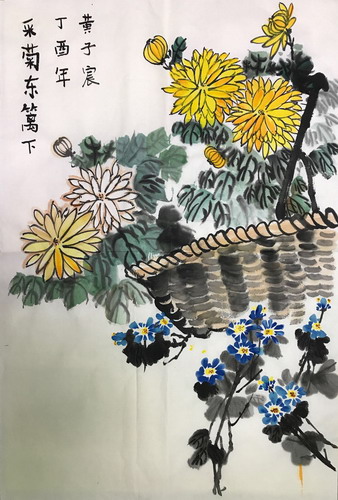 采菊东篱下
丁酉年
黄子宸